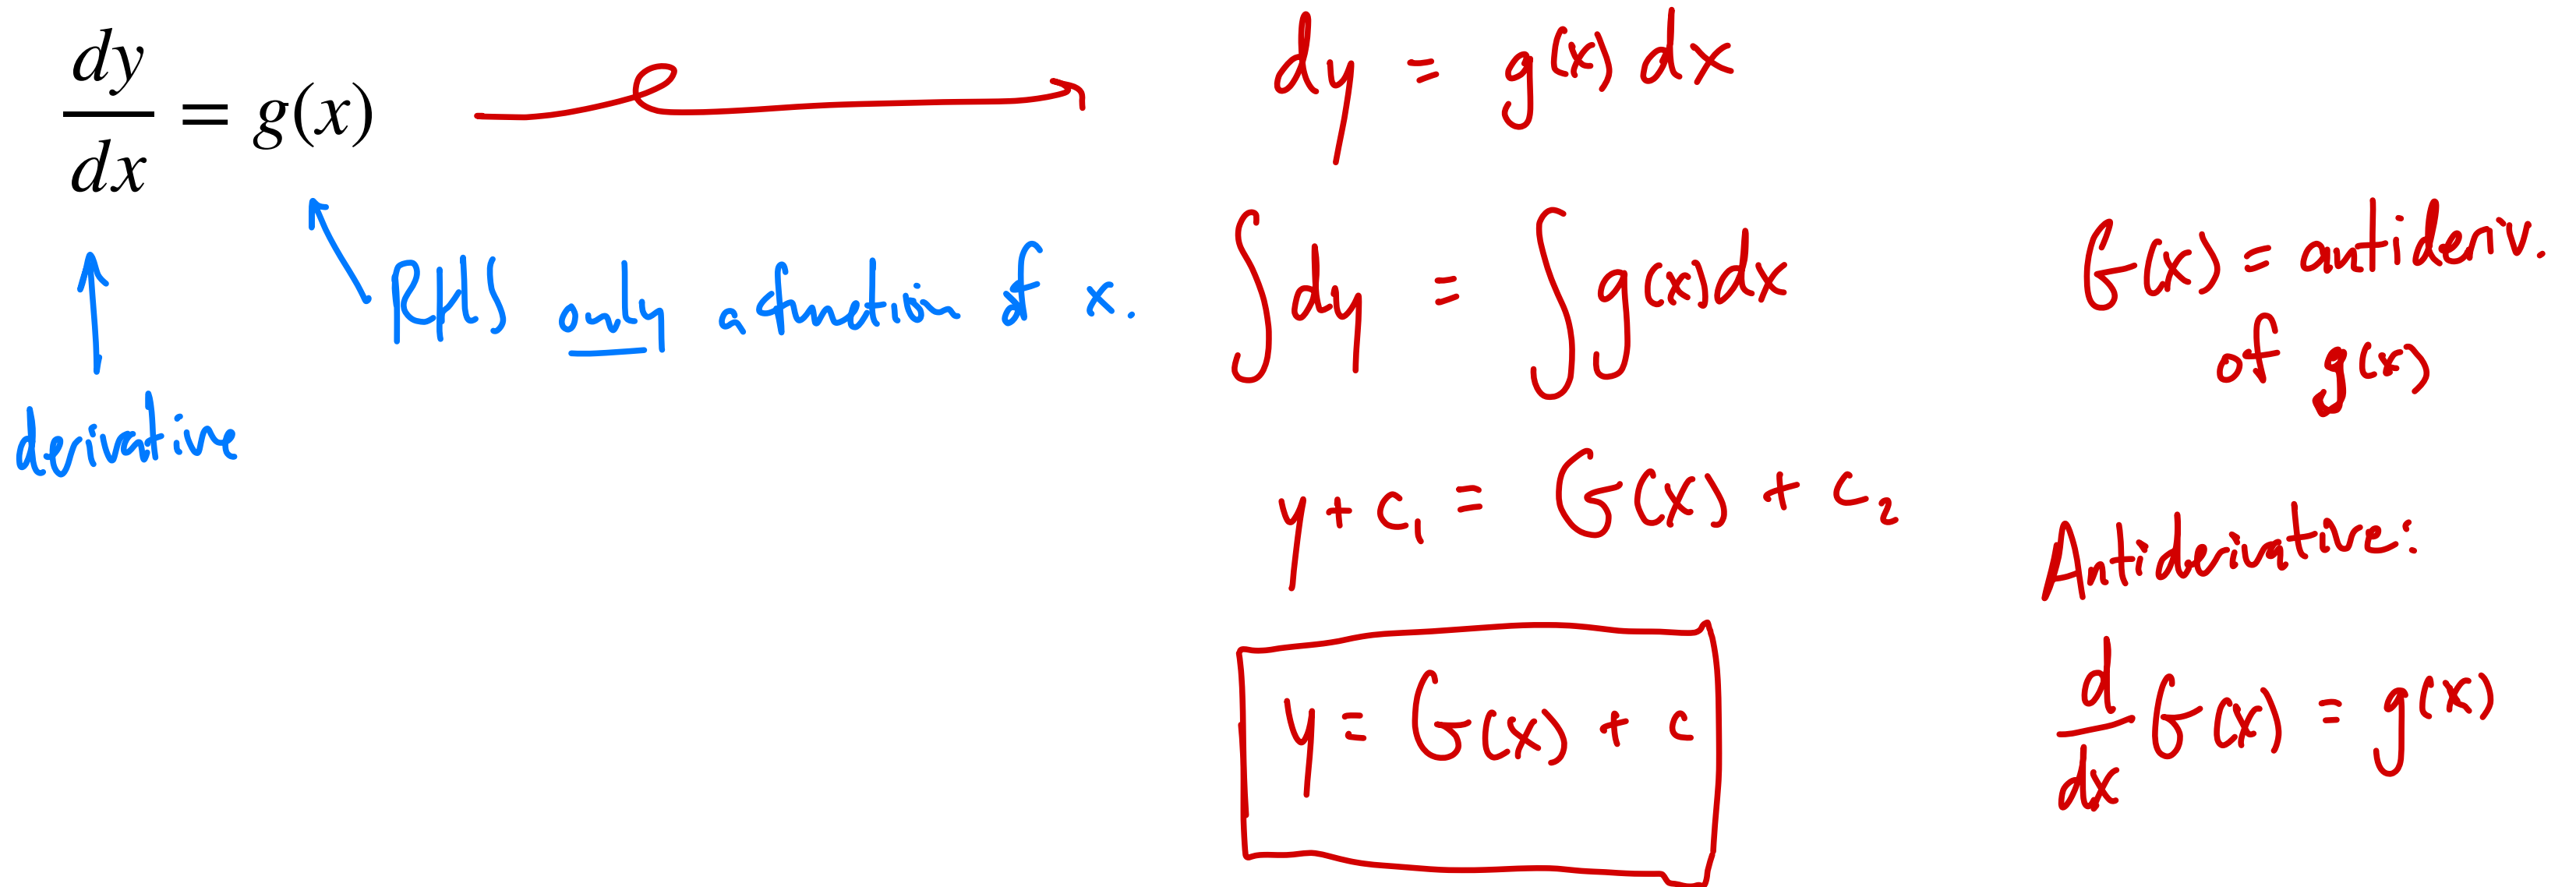 dy/dx = g(x)
RHS only a function of x.
derivative
dy = g(x) dx
∫dy = ∫g(x)dx
y + c₁ = G(x) + c₂
y = G(x) + c
G(x) = antideriv.
of g(x)
Antiderivative:
d/dx G(x) = g(x)